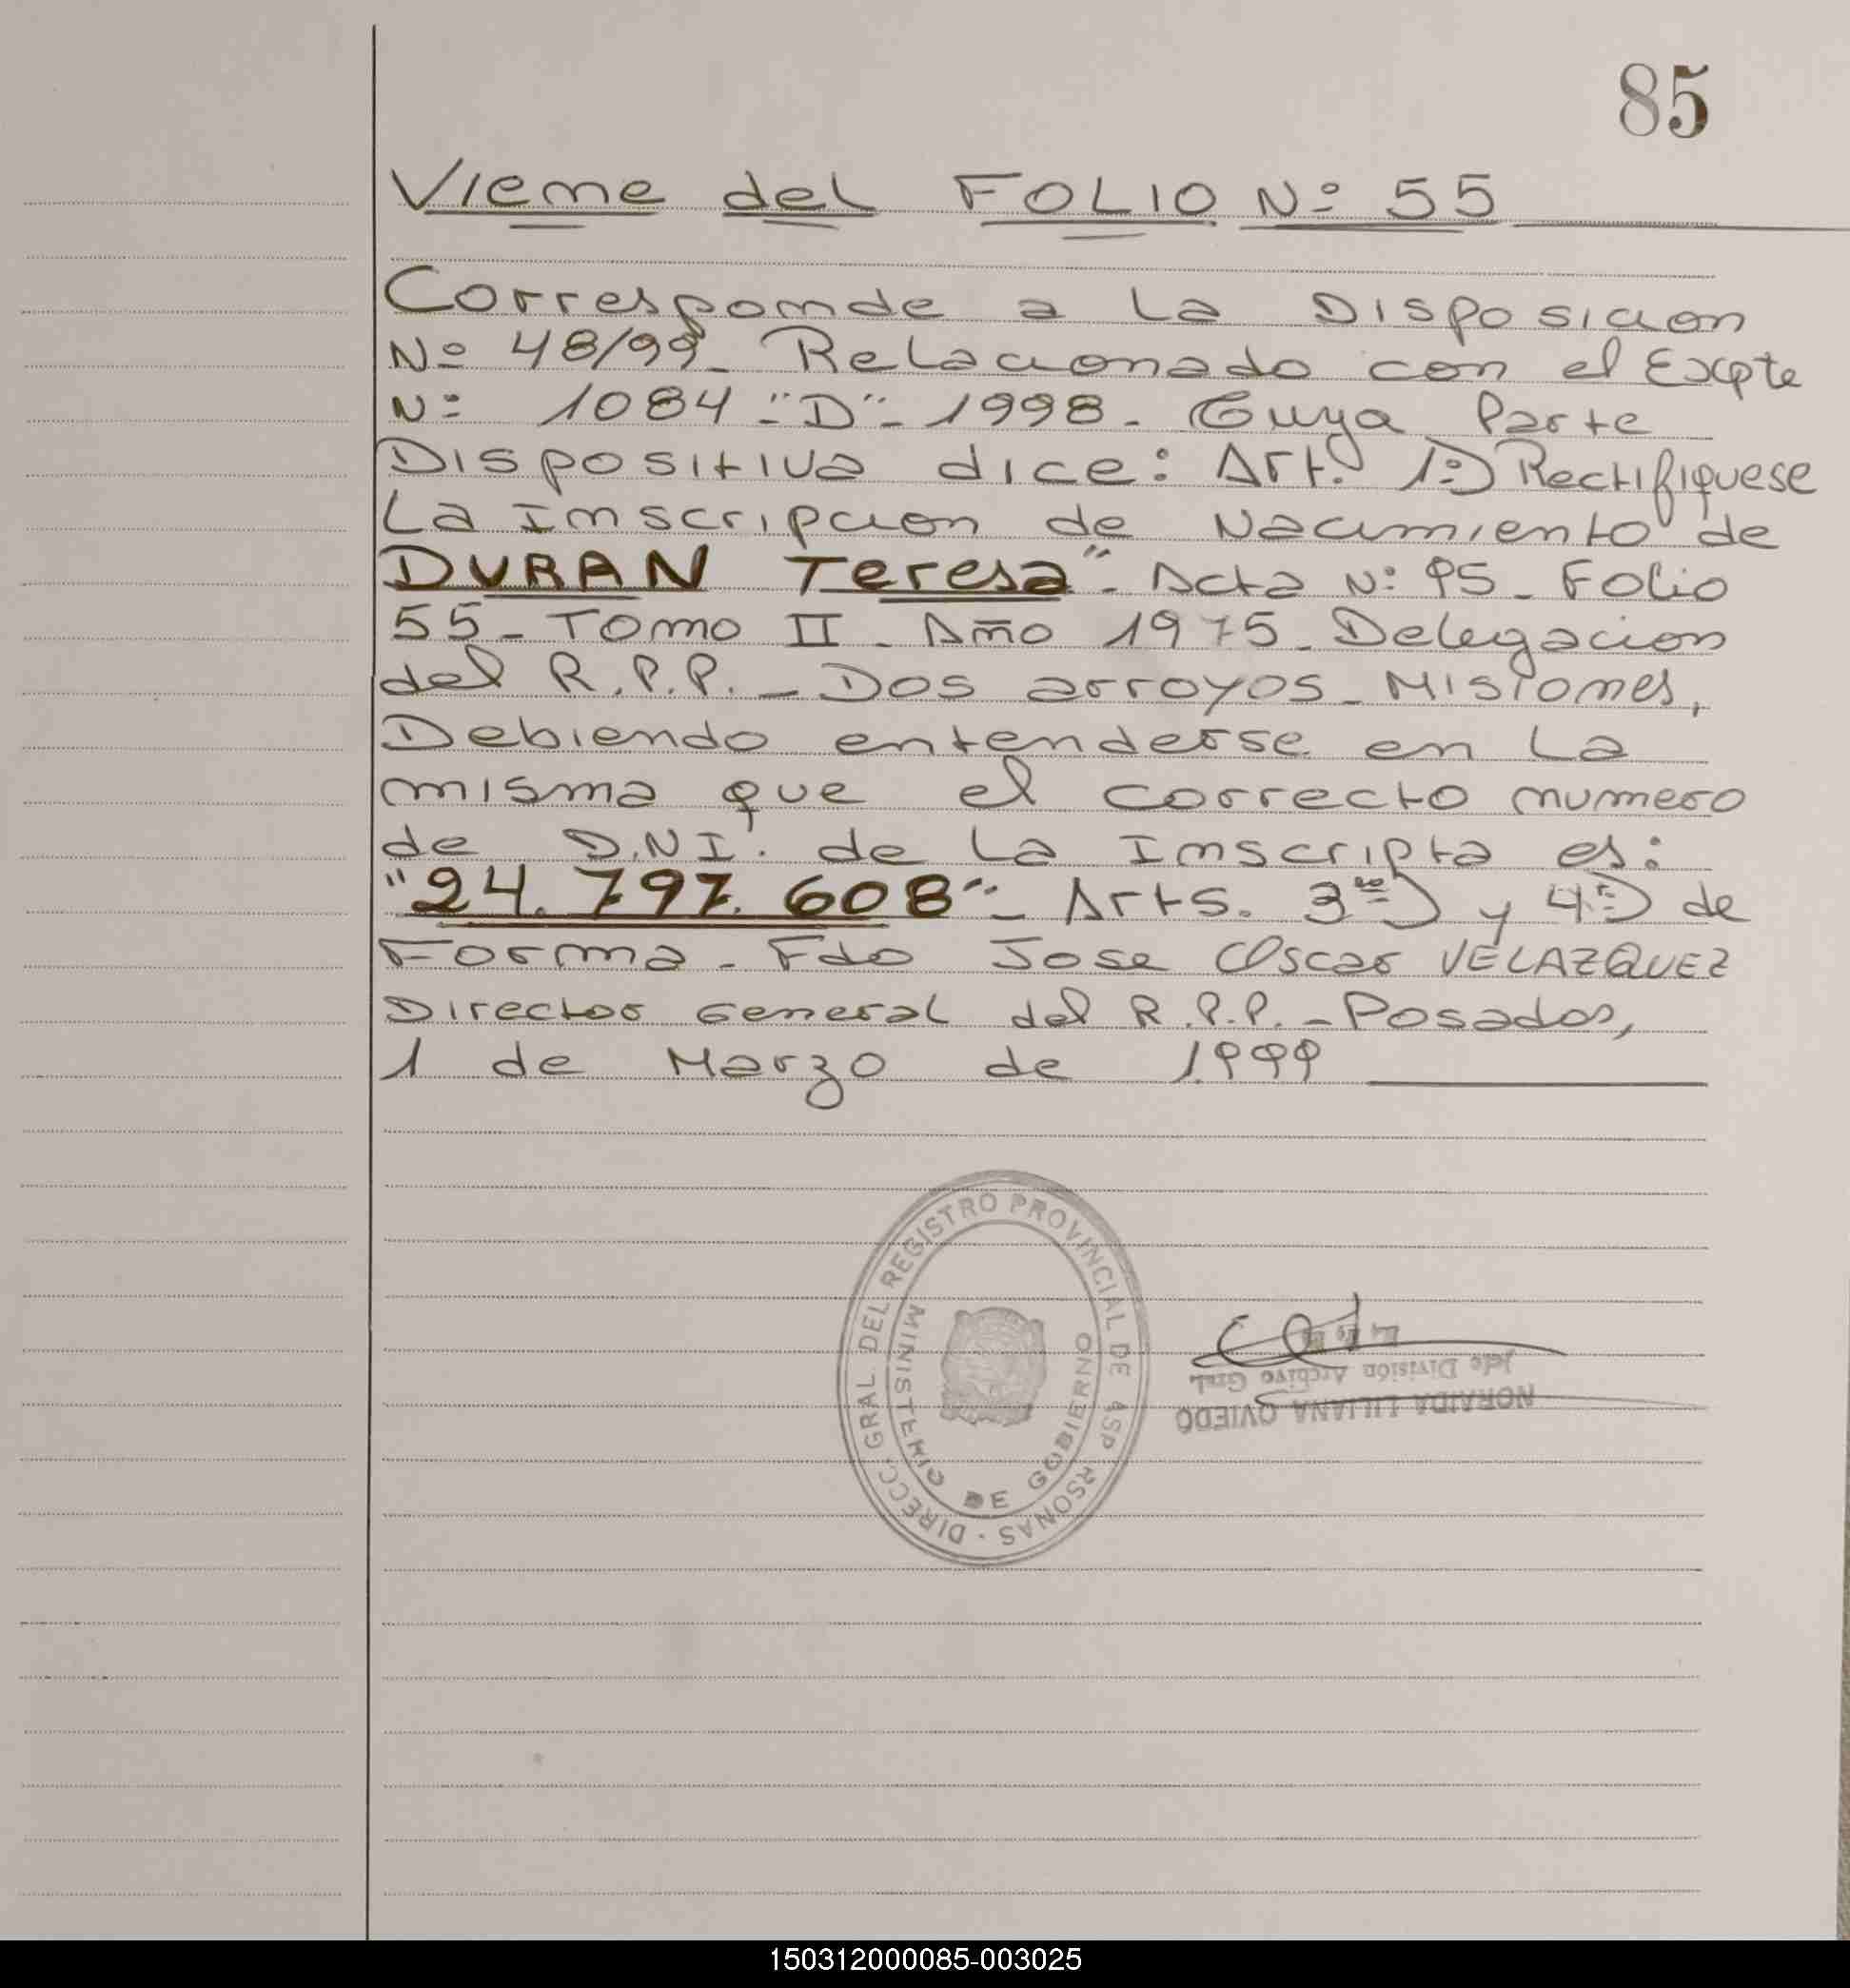 85
Viene del FOLIO Nº 55
Corresponde a La Disposicion
Nº 48/99_ Relacionado con el Expte
Nº 1084-"D"-1998. Cuya Parte
Dispositiva dice: Art. 1º) Rectifiquese
La Inscripcion de Nacimiento de
DURAN Teresa"- Acta Nº 95_ Folio
55_ Tomo II_ Año 1975_ Delegacion
del R.P.P._ Dos arroyos_ Misiones,
Debiendo entenderse en La
misma que el correcto numero
de D.N.I. de La Inscripta es:
"24.797.608"- Arts. 3ro) y 4º) de
Forma_ Fdo Jose Oscar VELAZQUEZ
Director General del R.P.P._ Posadas,
1 de Marzo de 1999
DIRECC. GRAL. DEL REGISTRO PROVINCIAL DE ASP RSONAS
MINISTERIO DE GOBIERNO
NORAIDA LILIANA OVIEDO
Jefe División Archivo Gral.
150312000085-003025